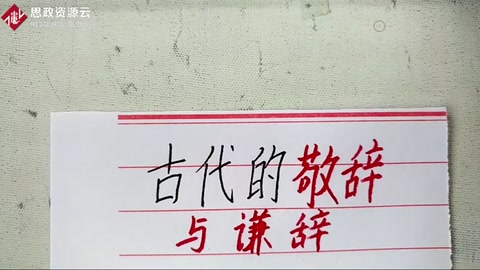 思政资源云
古代的敬辞
与谦辞